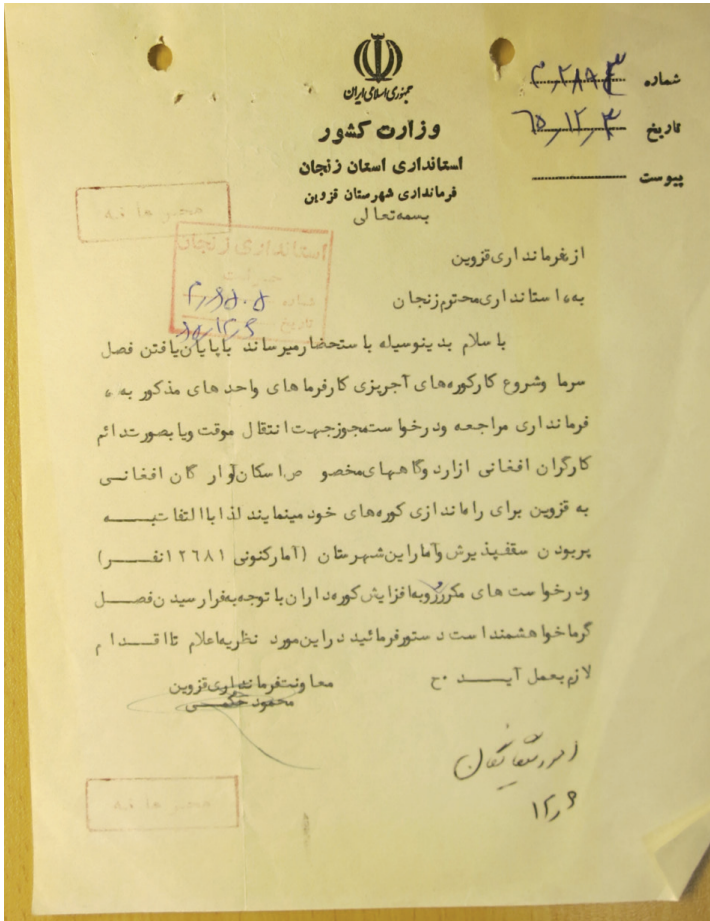 جمهوری اسلامی ایران
وزارت کشور
استانداری استان زنجان
فرمانداری شهرستان قزوین
بسمه تعالی
شماره
تاریخ ۶۵٫۱۲٫۳
پیوست
محرمانه
استانداری زنجان
شماره
تاریخ ۶۵٫۱۲٫۶
از، فرمانداری قزوین
به، استانداری محترم زنجان
با سلام بدینوسیله باستحضار میرساند با پایان یافتن فصل
سرما و شروع کار کوره های آجرپزی کارفرما های واحد های مذکور به،
فرمانداری مراجعه و درخواست مجوز جهت انتقال موقت و یا بصورت دائم
کارگران افغانی از اردوگاههای مخصوص اسکان آوارگان افغانی
به قزوین برای راه اندازی کوره های خود مینمایند لذا با التفات بــه
پر بودن سقف پذیرش و آمار این شهرستان (آمار کنونی ۱۲٦۸۱ نفــر)
و درخواست های مکرر و رو به افزایش کوره داران با توجه به فرا رسیدن فصــل
گرما خواهشمند است دستور فرمائید در این مورد نظریه اعلام تا اقــدام
لازم بعمل آیــد ۰ح
معاونت فرمانداری قزوین
محمود حکمــی
۱۲٫۶
محرمانه